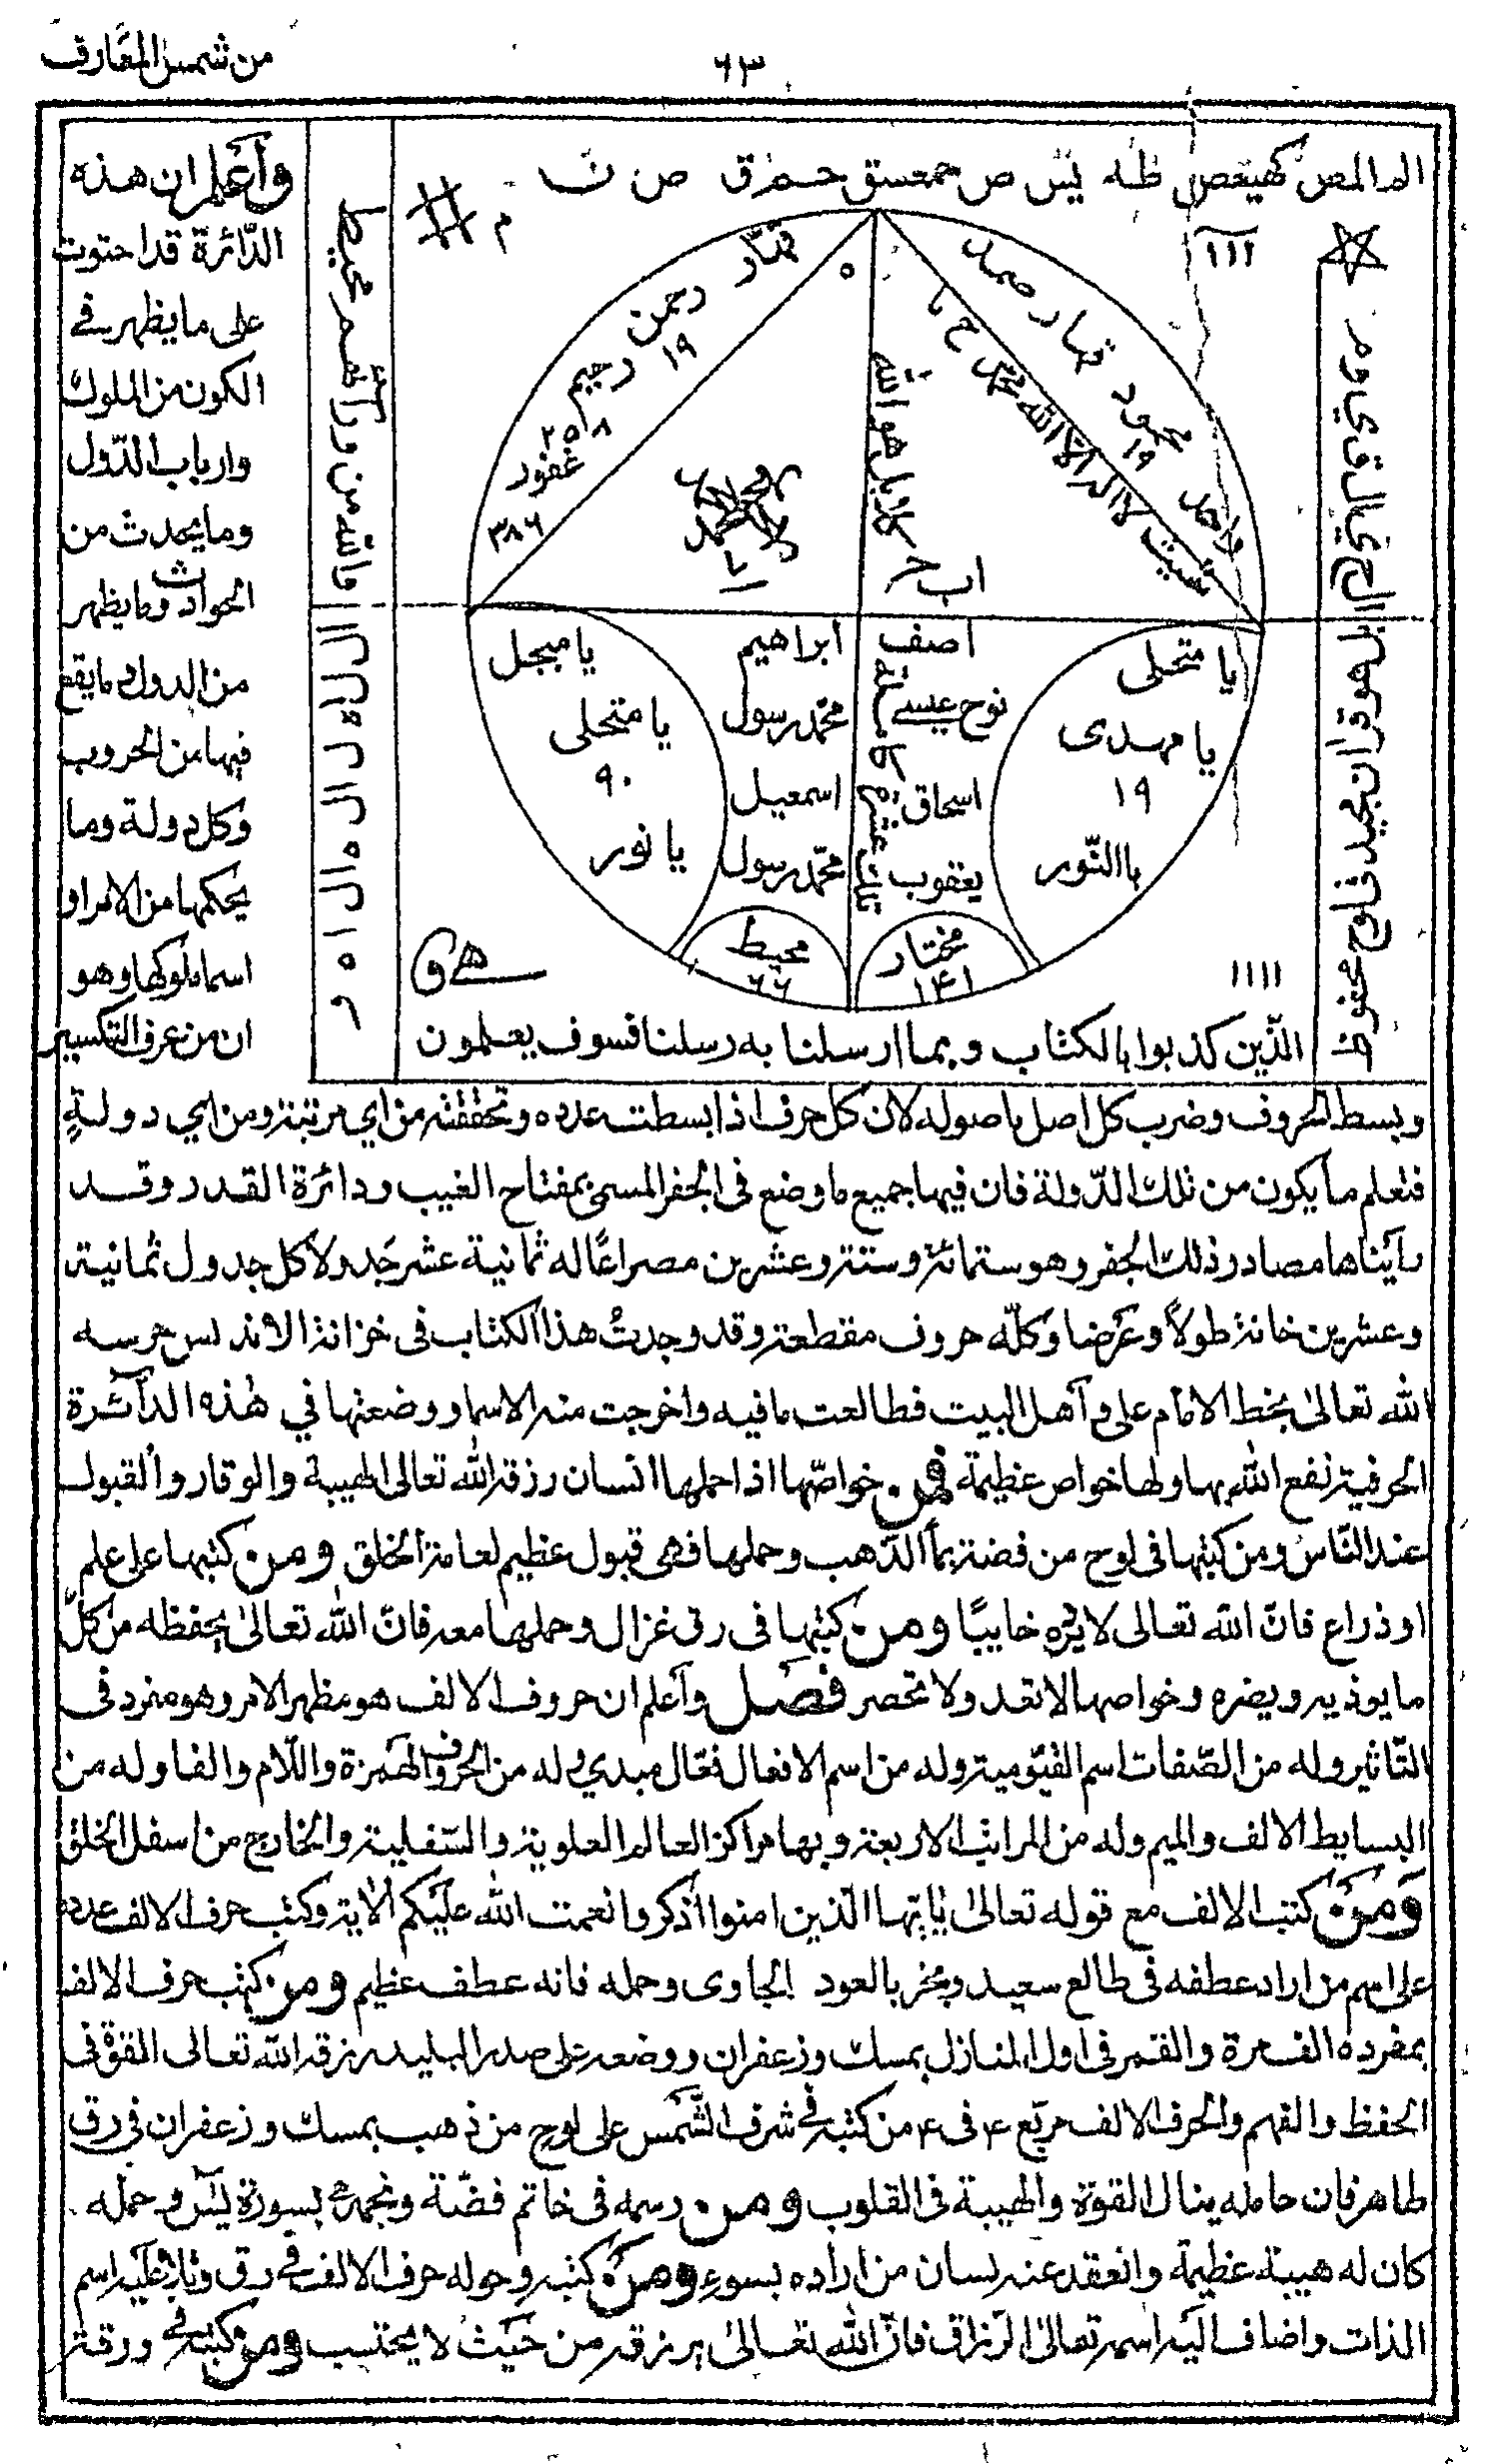 من شمس المعارف
٦٣
واعلم ان هذه
الدّائرة قد احتوت
على ما يظهر في
الكون من الملوك
وارباب الدّول
وما يحدث من
الحوادث وما يظهر
من الدول وما يقع
فيها من الحروب
وكل دولة وما
يحكمها من الامراو
اسما ملوكها وهو
ان من عرف التكسير
الم المص كهيعص طه يس ص حمعسق حم ق ص ن
والله من ورآئهم محيط
بل هو قرآن مجيد في لوح محفوظ
م
ااا
قهار
رحمن
١٩
رحيم
٢٥٨
غفور
٣٨٦
٥
قهار
١٩
لا اله الا الله محمد
بل هو الله
اب
ابراهيم
اصف
محمد رسول
نوح عيسى
اسمعيل
اسحاق
محمد رسول
يعقوب
يا مبجل
يا متجلى
٩٠
يا نور
يا متجلى
يا مهدى
١٩
يا النّور
محيط
٦٦
مختار
١٤١
اااا
الذّين كذبوا بالكتاب وبما ارسلنا به رسلنا فسوف يعلمون
وبسط الحروف وضرب كل اصل باصوله لان كل حرف اذا بسطت عدده وتحققته من اي مرتبة ومن اي دولةٍ
فتعلم ما يكون من تلك الدّولة فان فيها جميع ما وضع فى الجفر المسمى بمفتاح الغيب ودائرة القدر وقد
رايناها مصادر ذلك الجفر وهو ستمائة وستة وعشرين مصراعًا له ثمانية عشر جدولا كل جدول ثمانية
وعشرين خانة طولاً وعرضا وكلّه حروف مقطعة وقد وجدتُ هذا الكتاب فى خزانة الاندلس حرسه
الله تعالى بخط الامام على وآهل البيت فطالعت ما فيه واخرجت منه الاسما ووضعتها في هذه الدآئرة
الحرفية نفع الله بها ولها خواص عظيمة فمن خواصّها اذا حملها انسان رزقه الله تعالى الهيبة والوقار والقبول
عند النّاس ومن كتبها فى لوح من فضة بمآ الذّهب وحملها فهى قبول عظيم لعامة الخلق ومن كتبها على علم
او ذراع فانّ الله تعالى لا يرّه خايبًا ومن كتبها فى رق غزال وحملها معه فانّ الله تعالى يحفظه من كلّ
ما يوذيه ويضره وخواصها لا تعد ولا تحصر فصل وآعلم ان حروف الالف هو مظهر الامر وهو منفرد فى
التّاثير وله من الصّفات اسم القيّومية وله من اسم الافعال فعّال مبدي وله من الحروف الهمزة واللّام والفا وله من
البسايط الالف والميم وله من المراتب الاربعة وبها مراكز العالم العلوية والسّفلية والخارج من اسفل الخلق
ومن كتب الالف مع قوله تعالى يا ايّها الّذين امنوا اذكروا نعمت الله عليكم الآية وكتب حرف الالف عدده
على اسم من اراد عطفه فى طالع سعيد وبخر بالعود الجاوى وحمله فانه عطف عظيم ومن كتب حرف الالف
بمفرده الف مرة والقمر فى اول المنازل بمسك وزعفران ووضعه على صدر البليد رزقه الله تعالى القوة فى
الحفظ والفهم والحرف الالف مربّع ٤ فى ٤ من كتبه فى شرف الشّمس على لوح من ذهب بمسك وزعفران في رق
طاهر فان حامله ينال القوّة والهيبة فى القلوب ومن رسمه فى خاتم فضّة ونجمه بسورة يس وحمله
كان له هيبة عظيمة وانعقد عنه لسان من اراده بسوء ومن كتبه وحوله حرف الالف فى رق وتلا عليه اسم
الذات واضاف اليه اسمه تعالى الرّزاق فانّ الله تعالى يرزقه من حيث لا يحتسب ومن كتبه فى ورقة